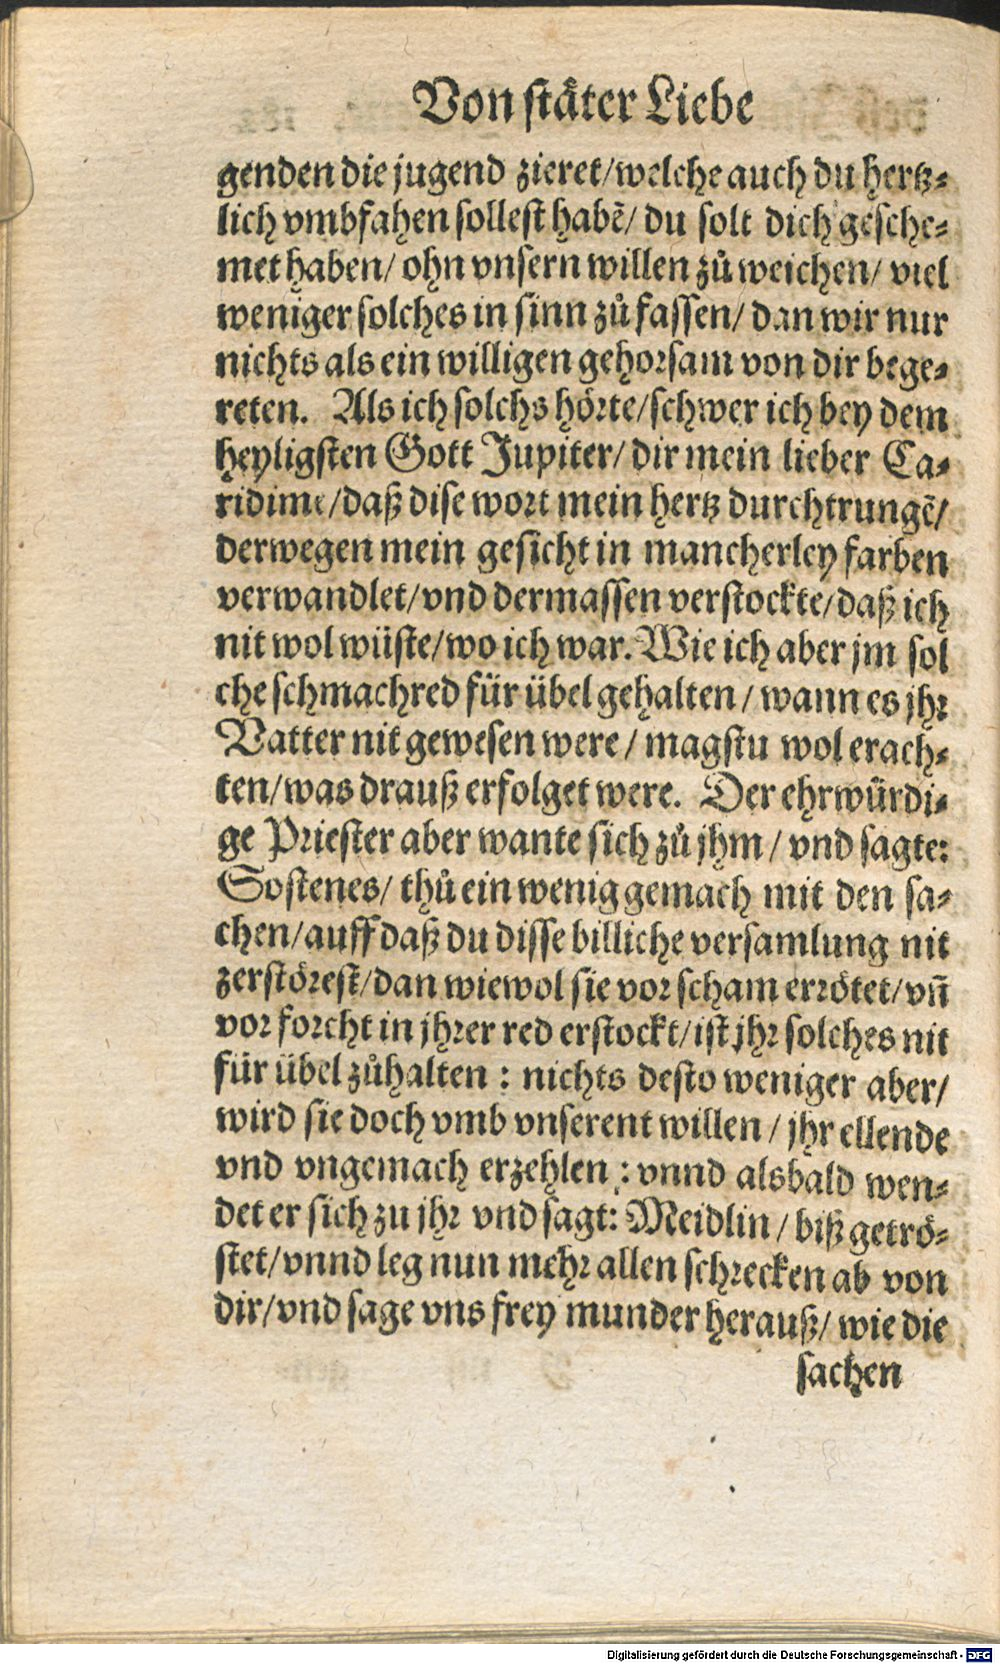 Von stäter Liebe
genden die jugend zieret/welche auch du hertz-
lich vmbfahen sollest habē/ du solt dich gesche-
met haben/ ohn vnsern willen zů weichen/ viel
weniger solches in sinn zů fassen/ dan wir nur
nichts als ein willigen gehorsam von dir bege-
reten. Als ich solchs hörte/schwer ich bey dem
heyligsten Gott Jupiter/ dir mein lieber Ca-
ridime/daß dise wort mein hertz durchtrungē/
derwegen mein gesicht in mancherley farben
verwandlet/vnd dermassen verstockte/daß ich
nit wol wüste/wo ich war. Wie ich aber jm sol
che schmachred für übel gehalten/ wann es jhr
Vatter nit gewesen were/ magstu wol erach-
ten/was drauß erfolget were. Der ehrwürdi-
ge Priester aber wante sich zů jhm/ vnd sagte:
Sostenes/ thů ein wenig gemach mit den sa-
chen/auff daß du disse billiche versamlung nit
zerstörest/dan wiewol sie vor scham errötet/vñ
vor forcht in jhrer red erstockt/ist jhr solches nit
für übel zůhalten: nichts desto weniger aber/
wird sie doch vmb vnserent willen/ jhr ellende
vnd vngemach erzehlen: vnnd alsbald wen-
det er sich zu jhr vnd sagt: Meidlin/ biß getrö-
stet/vnnd leg nun mehr allen schrecken ab von
dir/vnd sage vns frey munder herauß/ wie die
sachen
Digitalisierung gefördert durch die Deutsche Forschungsgemeinschaft - DFG